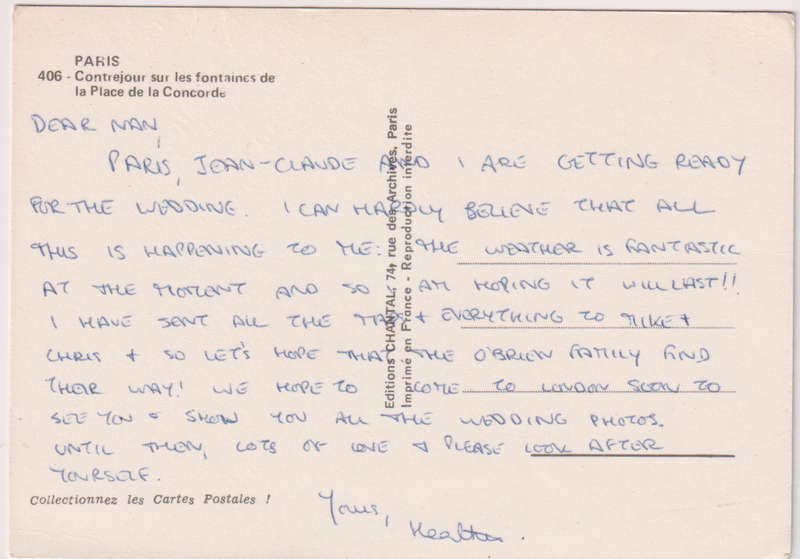 PARIS
406 - Contrejour sur les fontaines de
la Place de la Concorde
DEAR NAN,
PARIS, JEAN-CLAUDE AND I ARE GETTING READY
FOR THE WEDDING. I CAN HARDLY BELIEVE THAT ALL
THIS IS HAPPENING TO ME: THE WEATHER IS FANTASTIC
AT THE MOMENT AND SO I AM HOPING IT WILL LAST!!
I HAVE SENT ALL THE MAPS + EVERYTHING TO MIKE +
CHRIS + SO LET'S HOPE THAT THE O'BRIEN FAMILY FIND
THEIR WAY! WE HOPE TO COME TO LONDON SOON TO
SEE YOU + SHOW YOU ALL THE WEDDING PHOTOS.
UNTIL THEN, LOTS OF LOVE + PLEASE LOOK AFTER
YOURSELF.
Yours,
Heather.
Collectionnez les Cartes Postales !
Editions CHANTAL, 74, rue des Archives, Paris
Imprimé en France - Reproduction interdite